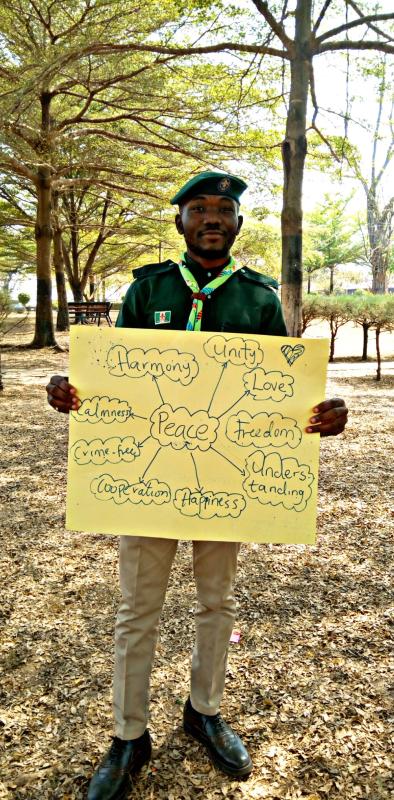 Unity
Harmony
Love
Calmness
Peace
Freedom
Crime-free
Unders
tanding
Cooperation
Happiness